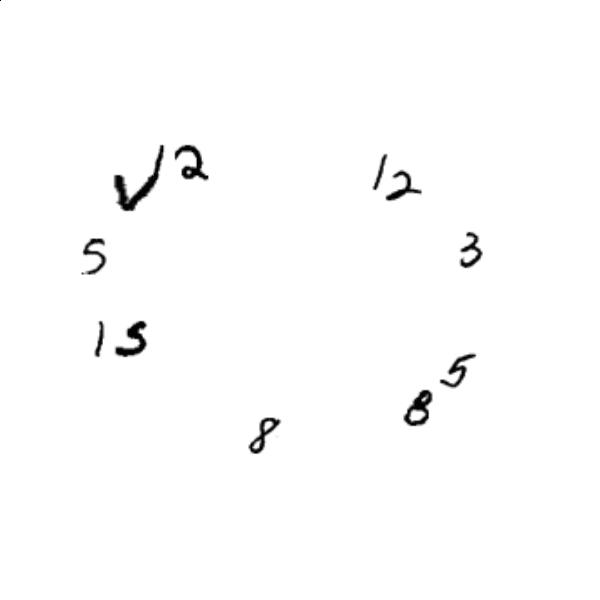 √2 12
5 3
15 5
8 8